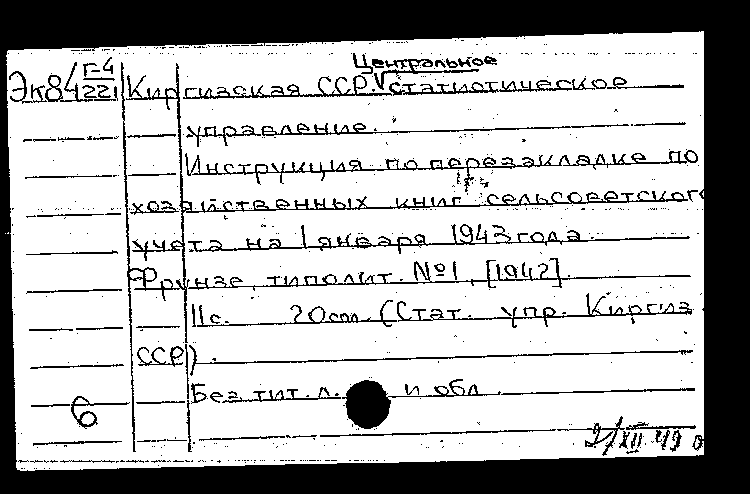 Центральное
Эк84 Г-4/221 Киргизская ССР. √статистическое
управление.
Инструкция по перезакладке по
хозяйственных книг сельсоветского
учета на 1 января 1943 года.
Фрунзе, типолит. №1, [1942].
11с. 20см. (Стат. упр. Киргиз.
ССР).
Без тит. л. и обл.
6
2/XII 49